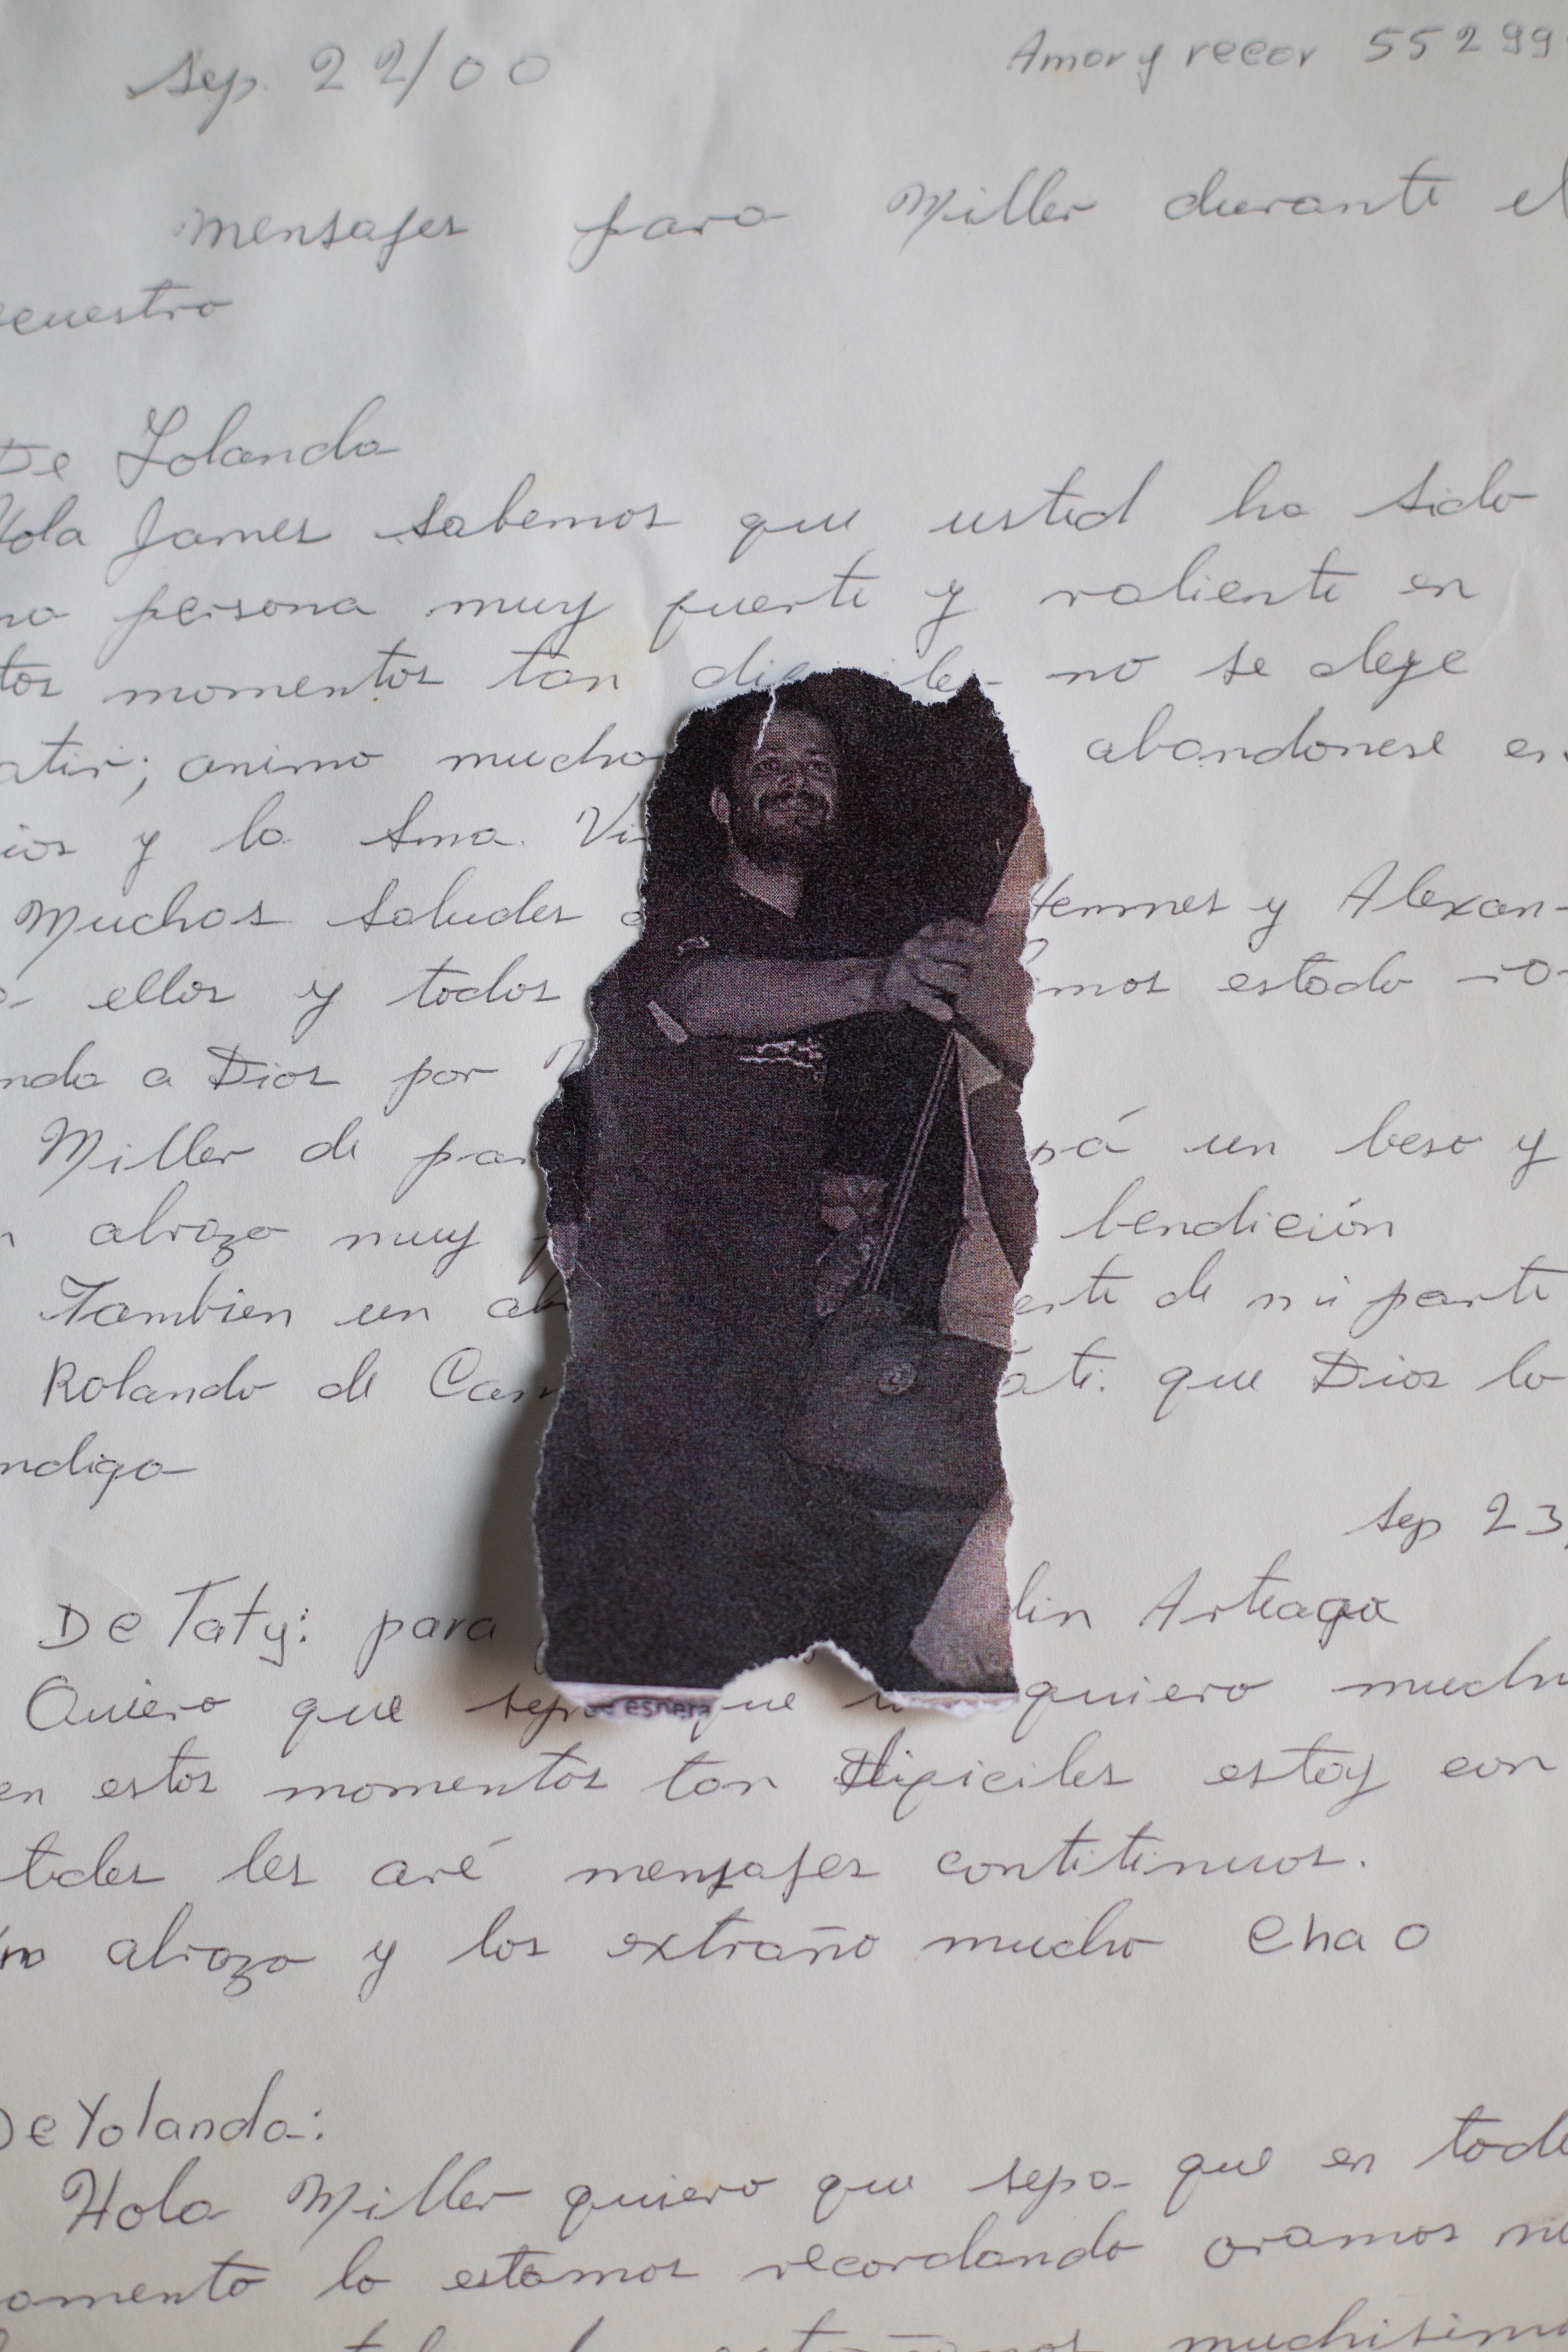 sep. 22/00
Amor y recor 55299
mensajes para Miller durante el
ecuestro
De Yolanda
Hola James sabemos que usted ha sido
na persona muy fuerte y valiente en
tos momentos tan no se deje
atir; animo mucho abandonese en
ios y la Sma. Vi
Muchos saludes Hermes y Alexan-
ellos y todos mos estado ro-
ndo a Dios por
Miller de pa pá un beso y
n abrazo muy bendición
Tambien un ab erte de mi parte
Rolando de Cas áti. que Dios lo
ndiga
sep 23,
De Taty: para lin Arteaga
Quiero que sep que quiero mucho
espera
en estos momentos tan dificiles estoy con
todos les aré mensajes contitinuos.
un abrazo y los extraño mucho Chao
De Yolanda:
Hola Miller quiero que sepa que en todo
omento lo estamos recordando oramos mu
muchisimo